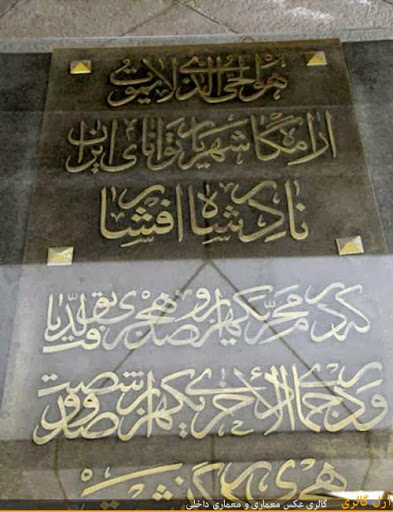 هو الحی الذی لا یموت
آرامگاه شهریار توانای ایران
نادر شاه افشار
که در محرم یکهزار و صد هجری بقید
و در جمادی الاخری یکهزار و صد و شصت
هجری در گذشت
گالری عکس معماری و معماری داخلی
آرل گالری